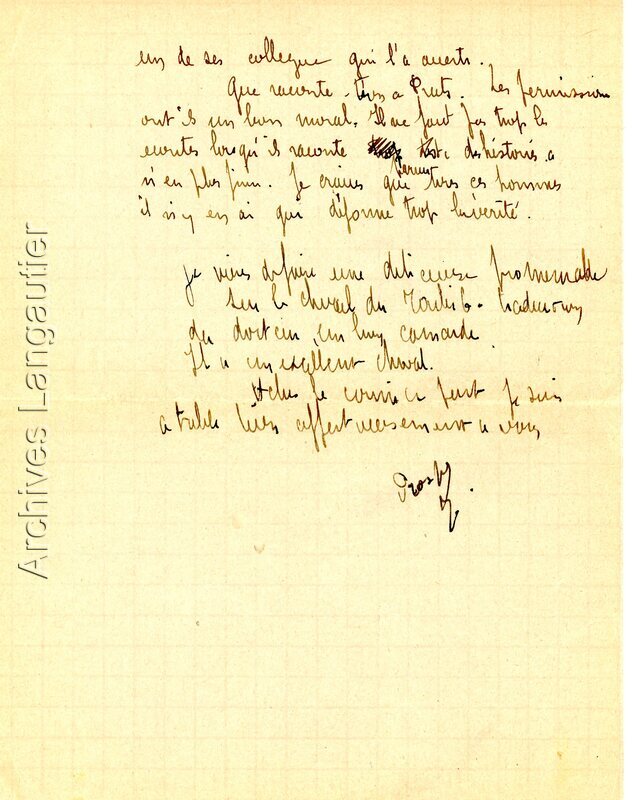 un de ses collegue qui l'a averti.
Que raconte-t-on a Prats. Les permission
ont ils un bon moral. Il ne faut pas trop les
ecoutes lorsqu'ils raconte des histoires a
n'en plus finir. Je crains que parmi tous ces hommes
il n'y en ai qui déforme trop la vérité.
Je viens de faire une delicieuse promenade
sur le cheval du
du docteur, un bon camarade
Il a un excellent cheval.
le courrier part je suis
a table bien affectueusement a vous
Archives Langautier